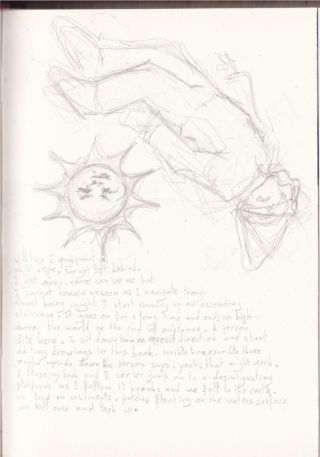 will
white rope. I'm not left behind.
I get away. noone can see me but
I cannot remain unseen as I navigate trough
Almost being caught I start running up an ascending
staircase. It goes on for a long time and ends up high
above the world or the end of existance. A person
sits here. I sit down in an oposit direction and start
editing drawings in this book.
maybe upside down the person says. yeah that might work.
I close my book and I jump on to a desintigrating
platform as I follow it breaks and we fall to the earth.
we land on sediments. patches floating on the waters surface
we roll over and look up.